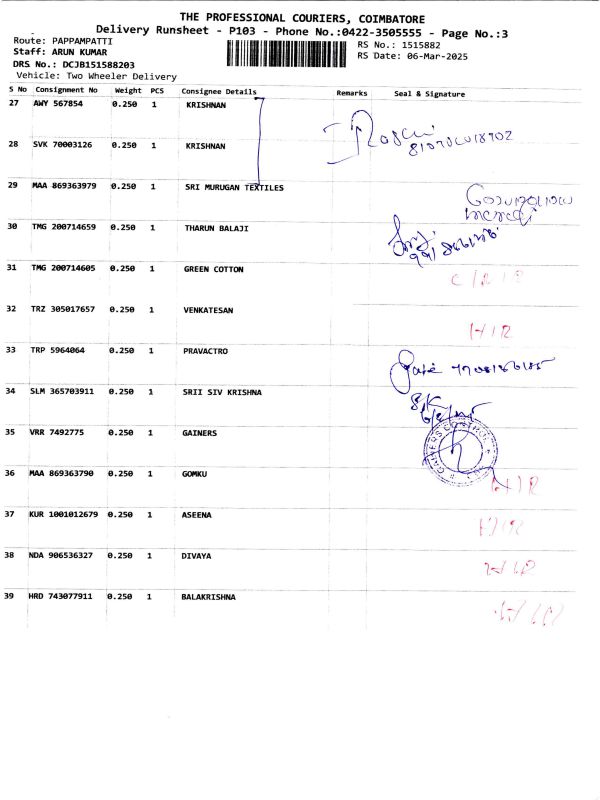 THE PROFESSIONAL COURIERS, COIMBATORE
Delivery Runsheet - P103 - Phone No.:0422-3505555 - Page No.:3
Route: PAPPAMPATTI
Staff: ARUN KUMAR
DRS No.: DCJB151588203
Vehicle: Two Wheeler Delivery
RS No.: 1515882
RS Date: 06-Mar-2025
S No Consignment No Weight PCS Consignee Details Remarks Seal & Signature
27 AWY 567854 0.250 1 KRISHNAN
28 SVK 70003126 0.250 1 KRISHNAN
29 MAA 869363979 0.250 1 SRI MURUGAN TEXTILES
30 TMG 200714659 0.250 1 THARUN BALAJI
31 TMG 200714605 0.250 1 GREEN COTTON
32 TRZ 305017657 0.250 1 VENKATESAN
33 TRP 5964064 0.250 1 PRAVACTRO
34 SLM 365703911 0.250 1 SRII SIV KRISHNA
35 VRR 7492775 0.250 1 GAINERS
36 MAA 869363790 0.250 1 GOMKU
37 KUR 1001012679 0.250 1 ASEENA
38 NDA 906536327 0.250 1 DIVAYA
39 HRD 743077911 0.250 1 BALAKRISHNA